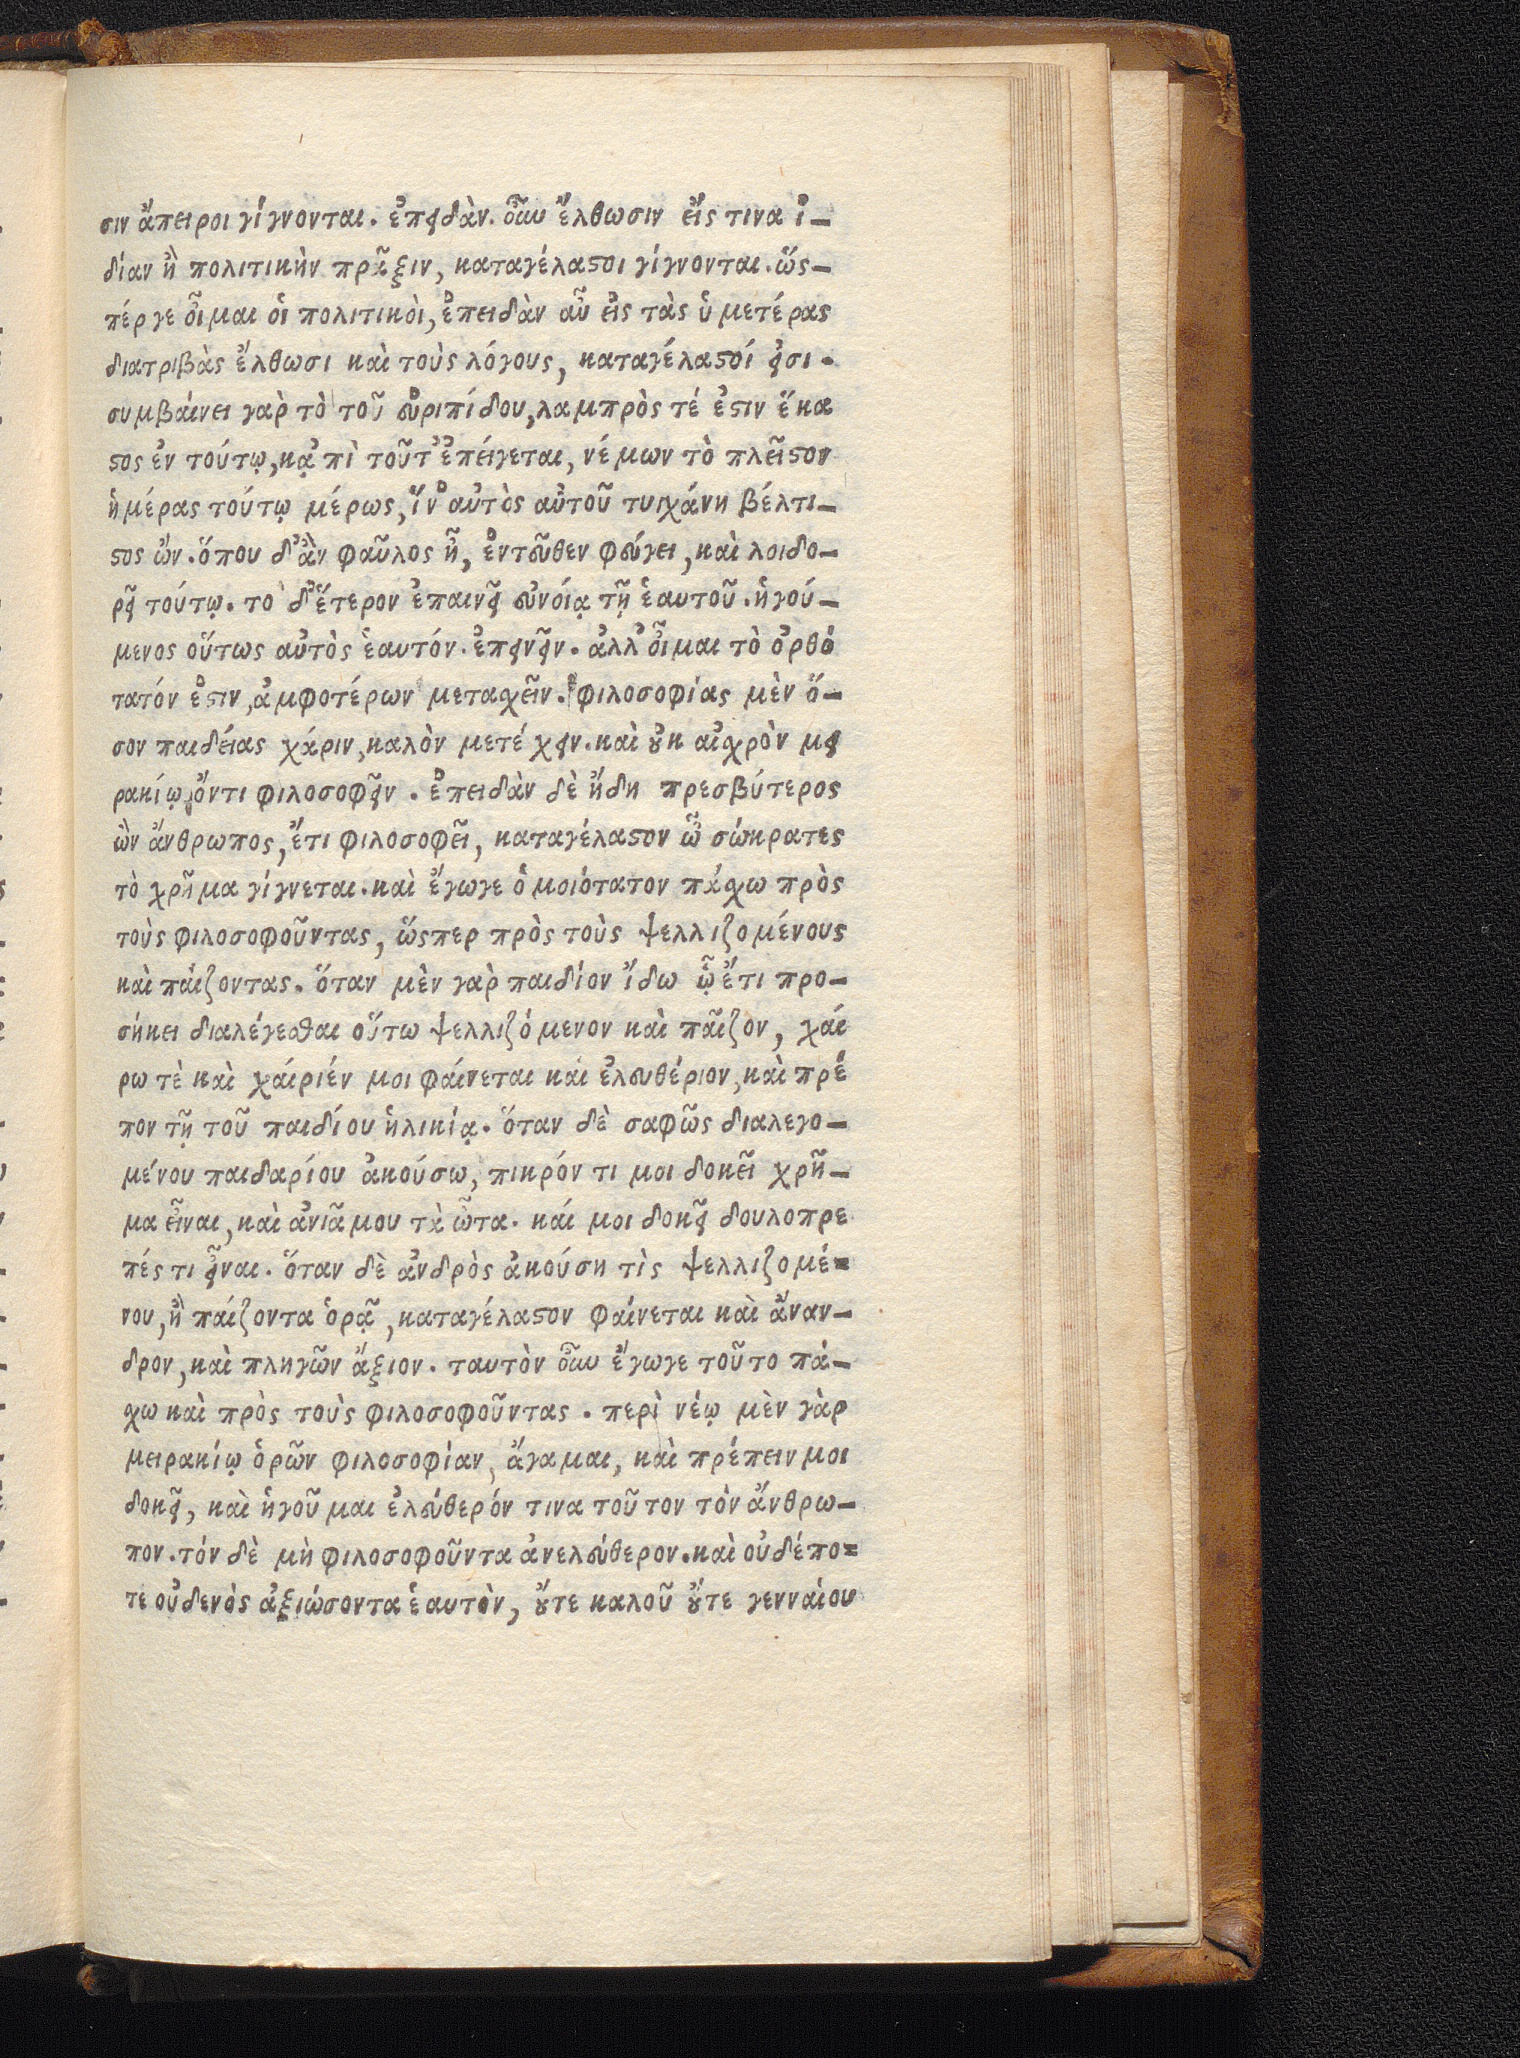 σιν ἄπειροι γίγνονται. ἐπειδὰν. οὖν ἔλθωσιν εἴς τινα ἰ-
δίαν ἢ πολιτικὴν πρᾶξιν, καταγέλαϛοι γίγνονται. ὥς-
πέρ γε οἶμαι οἱ πολιτικοὶ, ἐπειδὰν αὖ εἰς τὰς ὑμετέρας
διατριβὰς ἔλθωσι καὶ τοὺς λόγους, καταγέλαϛοί εἰσι.
συμβαίνει γαρ τὸ τοῦ εὐριπίδου, λαμπρὸς τέ ἐϛιν ἕκα
ϛος ἐν τούτῳ, κᾀπὶ τοῦτ' ἐπείγεται, νέμων τὸ πλεῖϛον
ἡμέρας τούτῳ μέρως, ἵν' αὐτὸς αὐτοῦ τυιχάνη βέλτι-
ϛος ὤν. ὅπου δ' ἂν φαῦλος ᾖ, ἐντεῦθεν φεύγει, καὶ λοιδο-
ρεῖ τούτῳ. το δ' ἕτερον ἐπαινεῖ εὐνοίᾳ τῇ ἑαυτοῦ. ἡγού-
μενος οὕτως αὐτὸς ἑαυτόν. ἐπεινεῖν. ἀλλ' οἶμαι τὸ ὀρθό
τατόν ἐϛιν, ἀμφοτέρων μεταχεῖν. φιλοσοφίας μὲν ὅ-
σον παιδείας χάριν, καλὸν μετέχειν. καὶ οὐκ αἰσχρὸν μει
ρακίῳ ὄντι φιλοσοφεῖν. ἐπειδὰν δὲ ἤδη πρεσβύτερος
ὢν ἄνθρωπος, ἔτι φιλοσοφεῖ, καταγέλαϛον ὦ σώκρατες
τὸ χρῆμα γίγνεται. καὶ ἔγωγε ὁμοιότατον πάσχω πρὸς
τοὺς φιλοσοφοῦντας, ὥςπερ πρὸς τοὺς ψελλιζομένους
καὶ παίζοντας. ὅταν μὲν γαρ παιδίον ἴδω ᾧ ἔτι προ-
σήκει διαλέγεσθαι οὕτω ψελλιζόμενον καὶ παῖζον, χαί
ρω τὲ καὶ χαίριέν μοι φαίνεται καὶ ἐλευθέριον, καὶ πρέ
πον τῇ τοῦ παιδίου ἡλικίᾳ. ὅταν δὲ σαφῶς διαλεγο-
μένου παιδαρίου ἀκούσω, πικρόν τι μοι δοκεῖ χρῆ-
μα εἶναι, καὶ ἀνιᾶ μου τὰ ὦτα. καί μοι δοκεῖ δουλοπρε
πές τι εἶναι. ὅταν δὲ ἀνδρὸς ἀκούση τὶς ψελλιζομέ=
νου, ἢ παίζοντα ὁρᾷ, καταγέλαϛον φαίνεται καὶ ἄναν-
δρον, καὶ πληγῶν ἄξιον. ταυτὸν οὖν ἔγωγε τοῦτο πά-
σχω καὶ πρὸς τοὺς φιλοσοφοῦντας. περὶ νέῳ μὲν γὰρ
μειρακίῳ ὁρῶν φιλοσοφίαν, ἄγαμαι, καὶ πρέπειν μοι
δοκεῖ, καὶ ἡγοῦμαι ἐλεύθερόν τινα τοῦτον τὸν ἄνθρω-
πον. τόν δὲ μὴ φιλοσοφοῦντα ἀνελεύθερον. καὶ οὐδέπο=
τε οὐδενὸς ἀξιώσοντα ἑαυτὸν, οὔτε καλοῦ οὔτε γενναίου